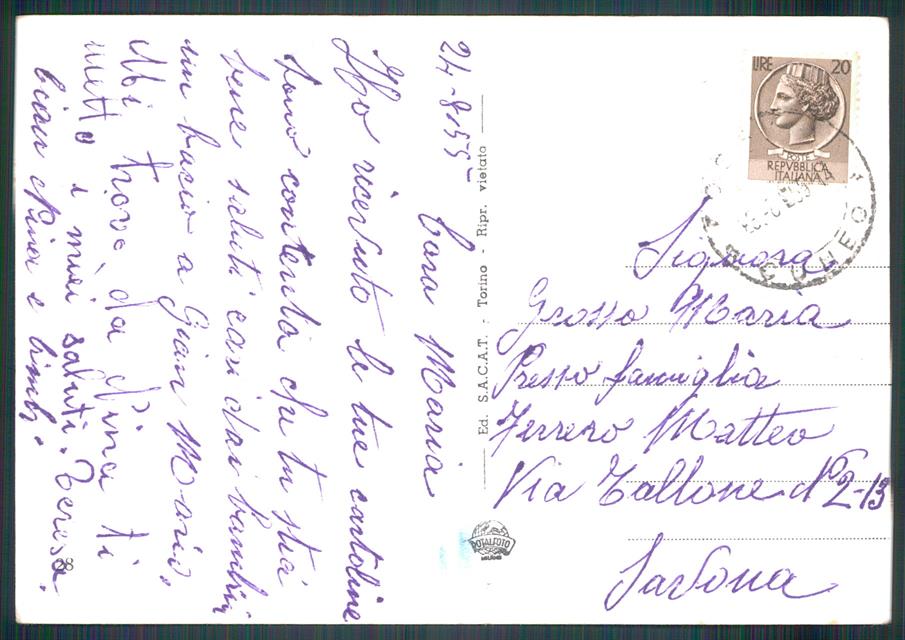 24-8-55
Cara Maria
Ho ricevuto le tue cartoline
sono contenta che tu stia
bene saluti cari dai bambini
un bacio a Gian Mario,
Mi trovo da d'ina ti
metto i miei saluti. Teresa.
ciau Pina e bimbi.
28
Ed. S.A.C.A.T. - Torino - Ripr. vietata
ROTALFOTO
MILANO
LIRE 20
POSTE
REPVBBLICA
ITALIANA
CUNEO
Signora
Grosso Maria
Presso famiglia
Ferrero Matteo
Via Tallone No 2-13
Savona